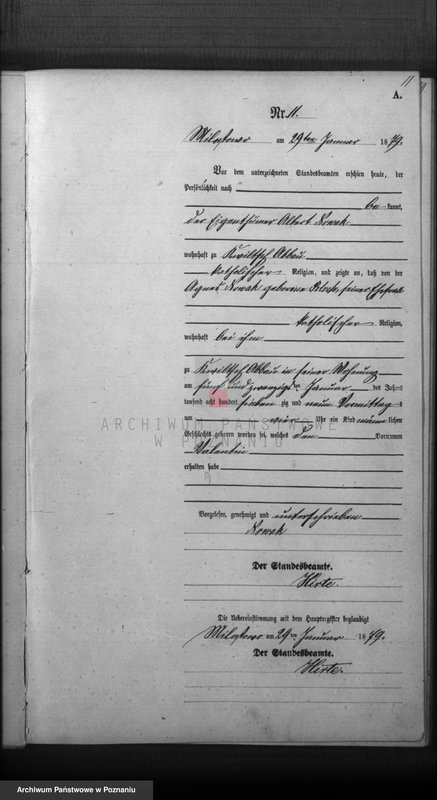 11
A.
Nr. 11.
Milostowo am 29ten Januar 1879.
Vor dem unterzeichneten Standesbeamten erschien heute, der
Persönlichkeit nach
be kannt,
der Eigenthümer Albert Nowak
wohnhaft zu Kwiltsch Abbau
katholischer Religion, und zeigte an, daß von der
Agnes Nowak geborene seiner Ehefrau
katholischer Religion,
wohnhaft bei ihm
zu Kwiltsch Abbau in seiner Wohnung
am fünf und zwanzigsten Januar des Jahres
tausend acht hundert sieben zig und neun Vormittags
um vier Uhr ein Kind männlichen
Geschlechts geboren worden sei, welches den Vornamen
Valentin
erhalten habe
Vorgelesen, genehmigt und unterschrieben
Nowak
Der Standesbeamte.
Hirte.
Die Uebereinstimmung mit dem Hauptregister beglaubigt
Milostowo am 29ten Januar 1879.
Der Standesbeamte.
Hirte.
ARCHIWUM PAŃSTWOWE
W POZNANIU
Archiwum Państwowe w Poznaniu